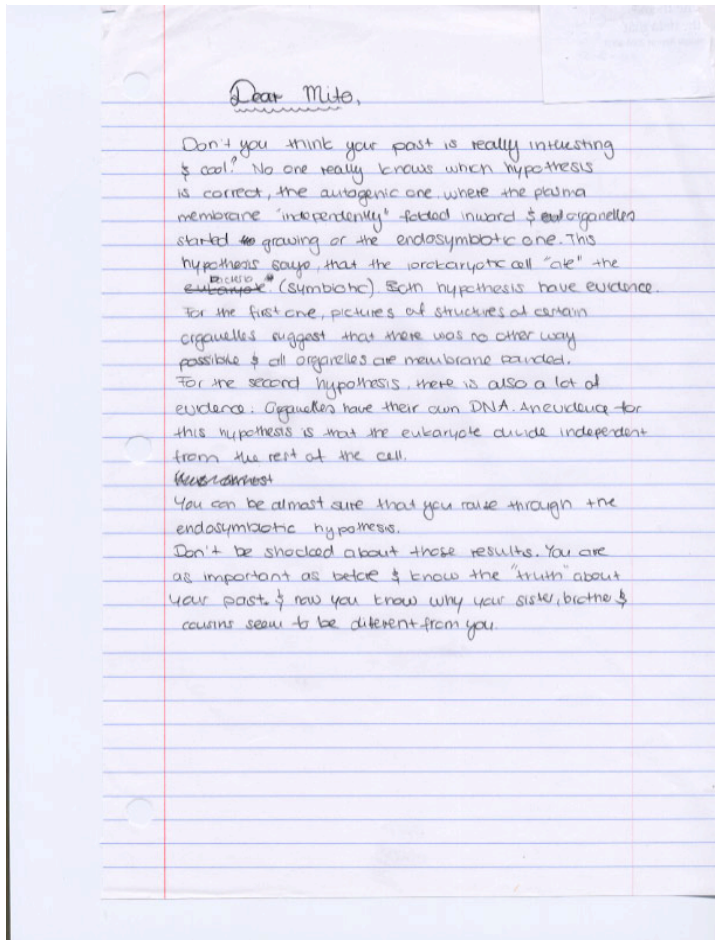 Dear Mito,
Don't you think your past is really interesting
& cool? No one really knows which hypothesis
is correct, the autogenic one where the plasma
membrane "independently" folded inward & organelles
started growing or the endosymbiotic one. This
hypothesis says, that the prokaryotic cell "ate" the
eukaryote (symbiotic) Both hypothesis have evidence.
For the first one, pictures of structures of certain
organelles suggest that there was no other way
possible & all organelles are membrane banded.
For the second hypothesis, there is also a lot of
evidence: Organelles have their own DNA. An evidence for
this hypothesis is that the eukaryote divide independent
from the rest of the cell.
You can be almost sure that you raise through the
endosymbiotic hypothesis.
Don't be shocked about those results. You are
as important as before & know the "truth" about
your past. & now you know why your sister, brother &
cousins seem to be diferent from you.